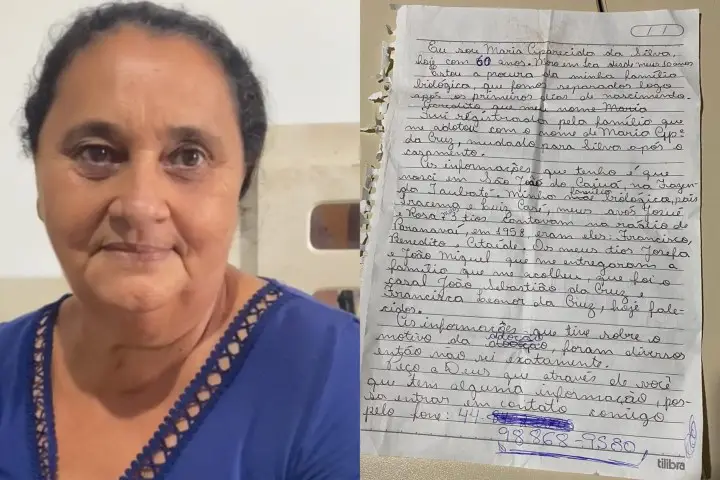 Eu sou Maria Aparecida da Silva,
hoje com 60 anos. Moro em Ica desde meus 10 anos
Estou a procura da minha família
biológica, que fomos separados logo
após os primeiros dias de nascimento.
Acredito, que meu nome Maria
Fui registrada pela família que
me adotou com o nome de Maria Apª
da Cruz, mudado para Silva após o
casamento.
As informações que tenho é que
nasci em São João do Caiuá, na Fazen-
da Taubaté. Minha família biológica, pais
Iracema e Luiz Casé, meus avós Josué
e Rosa e 3 tios cantavam na rádio de
Paranavaí, em 1958, eram eles: Francisco,
Benedito e Citaíde. Os meus tios Josefa
e João Miguel que me entregaram a
família que me acolheu que foi o
casal João Sebastião da Cruz e
Francisca Leonor da Cruz, hoje fale-
cidos.
As informações que tive sobre o
motivo da adoção, foram diversos
então não sei exatamente.
Peço a Deus que através de você
que tem alguma informação, pos-
sa entrar em contato comigo
pelo fone: 44-
98868-9580
tilibra